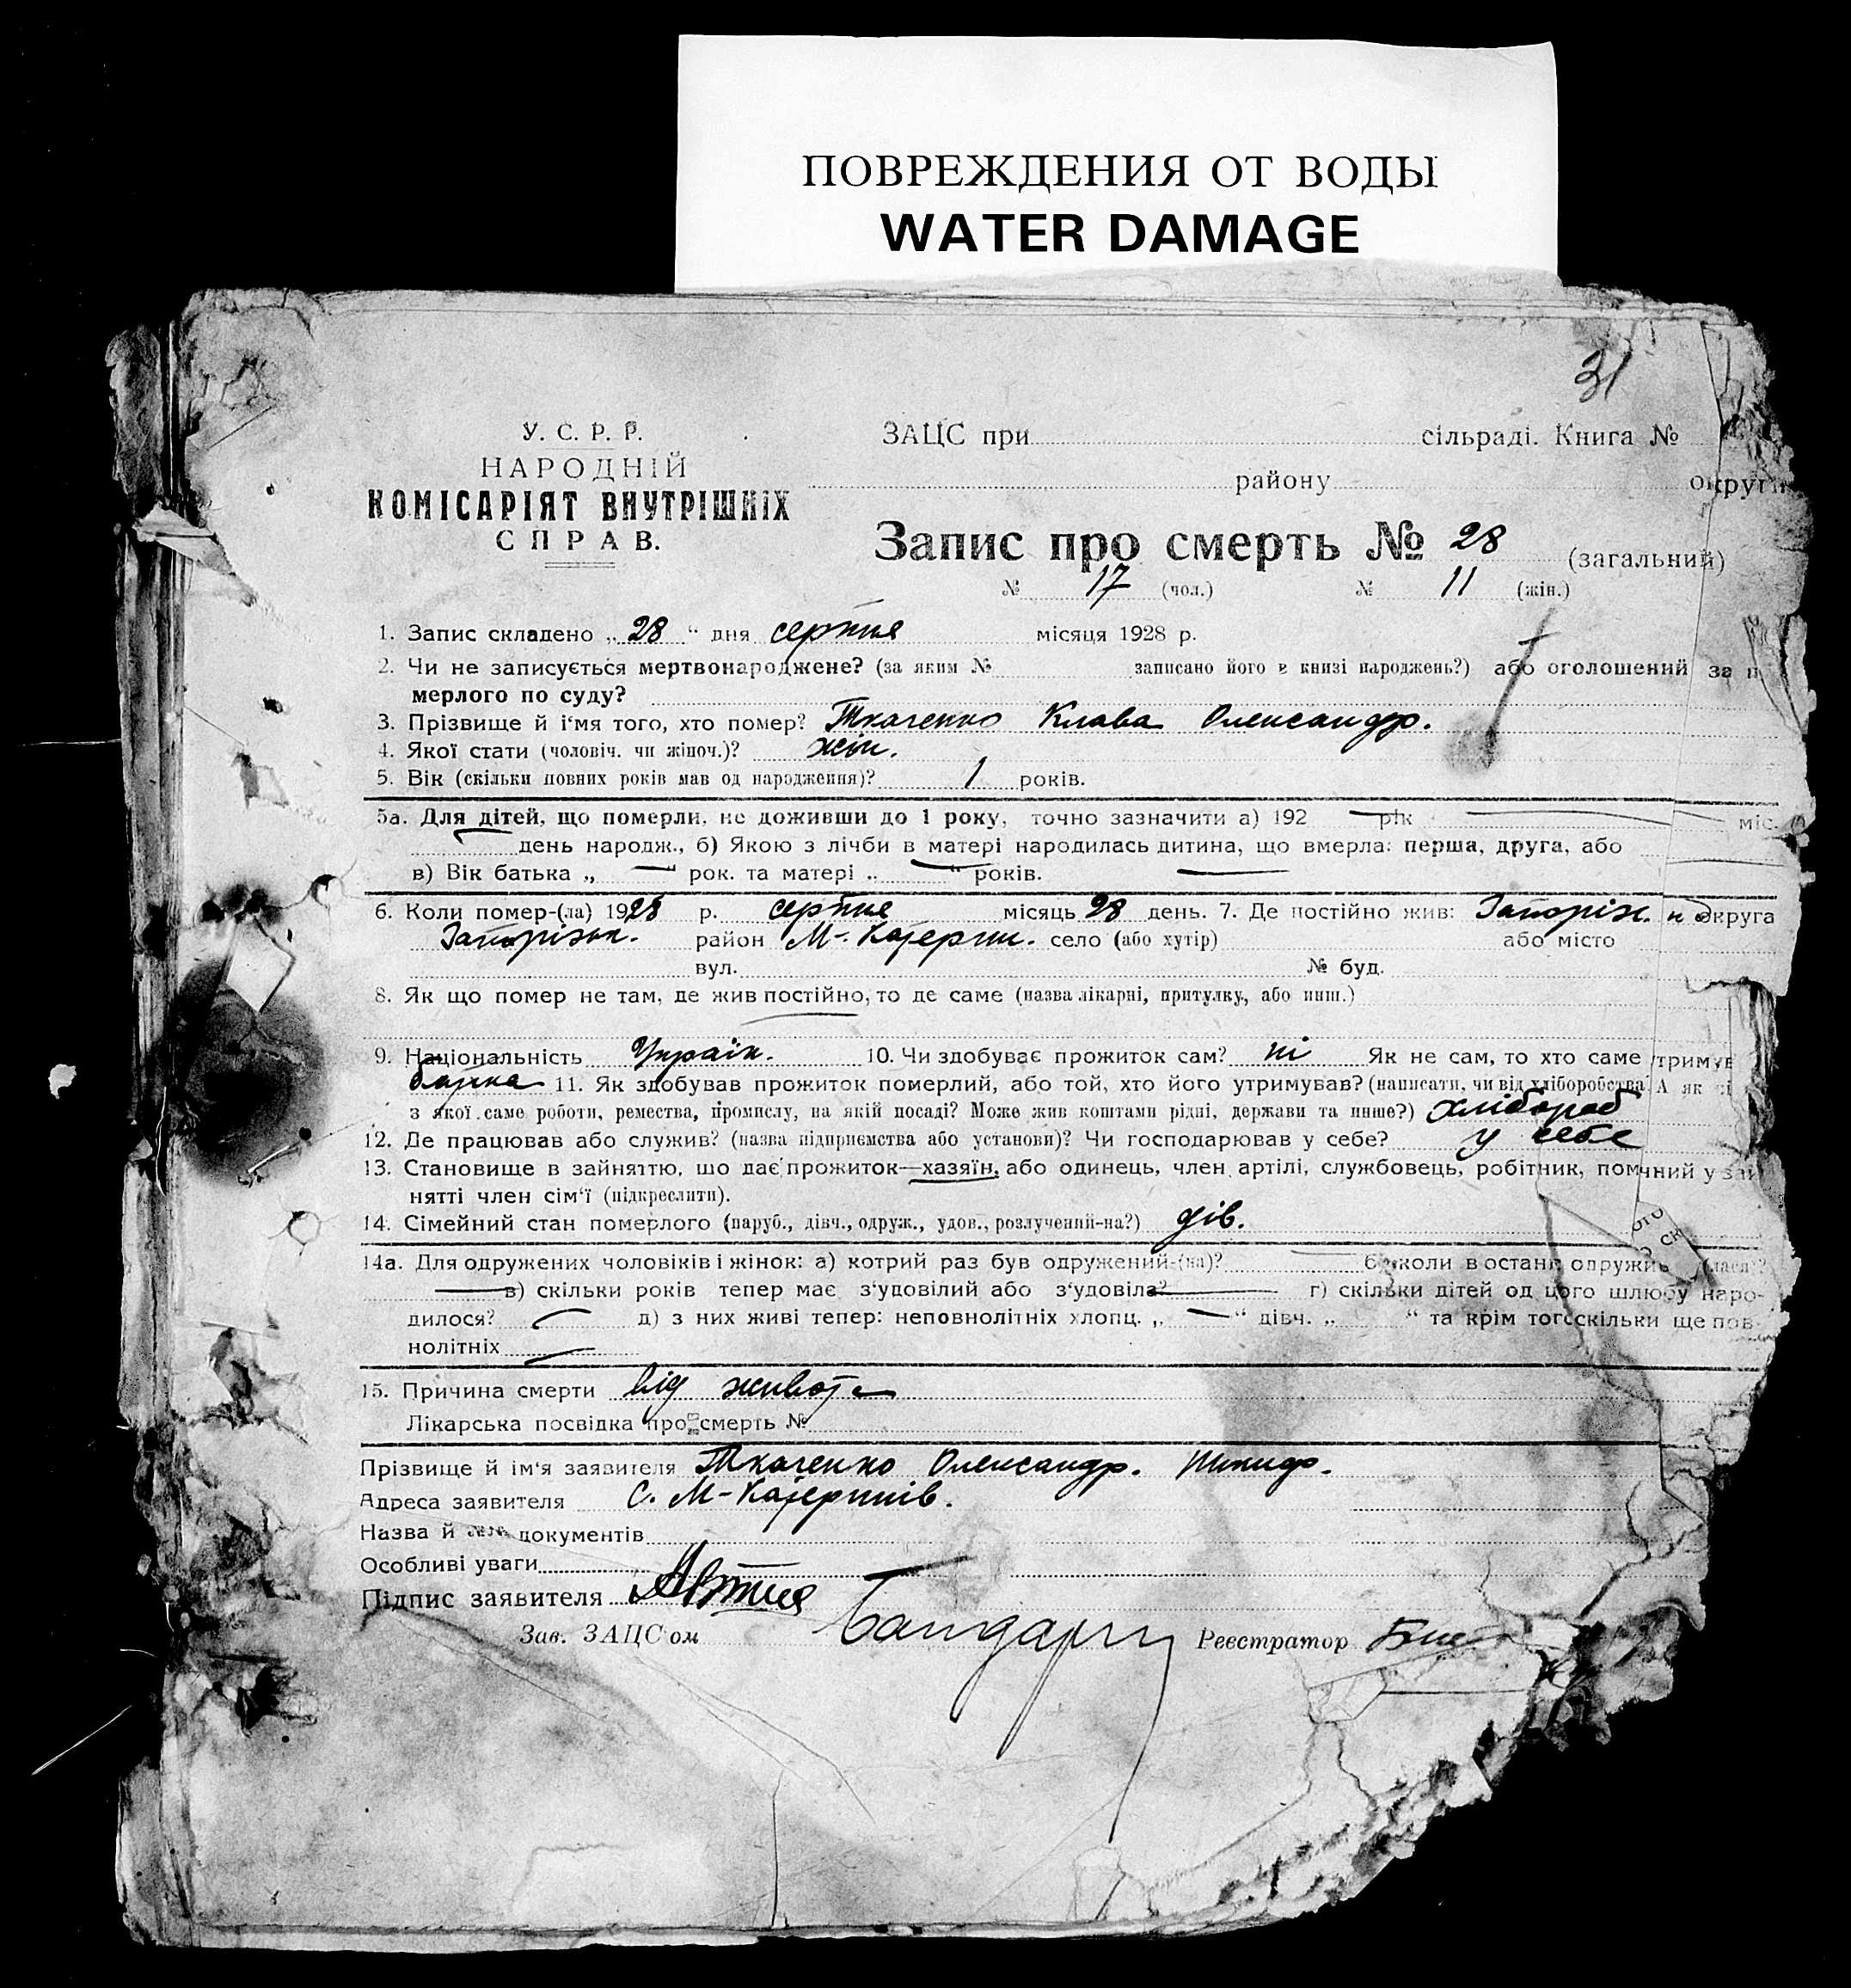 ПОВРЕЖДЕНИЯ ОТ ВОДЫ
WATER DAMAGE
31
У. С. Р. Р.
НАРОДНІЙ
КОМІСАРІЯТ ВНУТРІШНІХ
СПРАВ.
ЗАЦС при сільраді. Книга №
району округи
Запис про смерть № 28 (загальний)
№ 17 (чол.) № 11 (жін.)
1. Запис складено „ 28 “ дня серпня місяця 1928 р.
2. Чи не записується мертвонароджене? (за яким № записано його в книзі народжень?) або оголошений за п
мерлого по суду?
3. Прізвище й і'мя того, хто помер? Ткаченко Клава Олександр.
4. Якої стати (чоловіч. чи жіноч.)? жін.
5. Вік (скільки повних років мав од народження)? 1 років.
5а. Для дітей, що померли, не доживши до 1 року, точно зазначити а) 192 — рік — міс.
день народж., б) Якою з лічби в матері народилась дитина, що вмерла: перша, друга, або
в) Вік батька „ — “ рок. та матері „ — “ років. —
6. Коли помер-(ла) 1928 р. серпня місяць 28 день. 7. Де постійно жив: Запоріж. округа
Запорізьк. район М-. Катерин. село (або хутір) або місто
вул. № буд.
8. Як що помер не там, де жив постійно, то де саме (назва лікарні, притулку, або инш.)
9. Національність Україн. 10. Чи здобуває прожиток сам? ні Як не сам, то хто саме тримув
батька 11. Як здобував прожиток померлий, або той, хто його утримував? (написати, чи від хліборобства. А як ні
з якої саме роботи, ремества, промислу, на якій посаді? Може жив коштами рідні, держави та инше?) хлібороб
12. Де працював або служив? (назва підприємства або установи)? Чи господарював у себе? у себе
13. Становище в зайняттю, що дає прожиток—хазяїн, або одинець, член артілі, службовець, робітник, помічний у зай
нятті член сім'ї (підкреслити).
14. Сімейний стан померлого (паруб., дівч., одруж., удов., розлучений-на?) дів.
14а. Для одружених чоловіків і жінок: а) котрий раз був одружений-(на)? б) коли востанє одружив (лася)?
— в) скільки років тепер має з'удовілий або з'удовіла? — г) скільки дітей од цього шлюбу наро-
дилося? — д) з них живі тепер: неповнолітніх хлопц. „ — “ дівч. „ “ та крім того скільки ще пов-
нолітніх —
15. Причина смерти від живота
Лікарська посвідка про смерть №
Прізвище й ім'я заявителя Ткаченко Олександр.
Адреса заявителя С. М-Катеринів.
Назва й документів
Особливі уваги
Підпис заявителя
Зав. ЗАЦС'ом Реєстратор